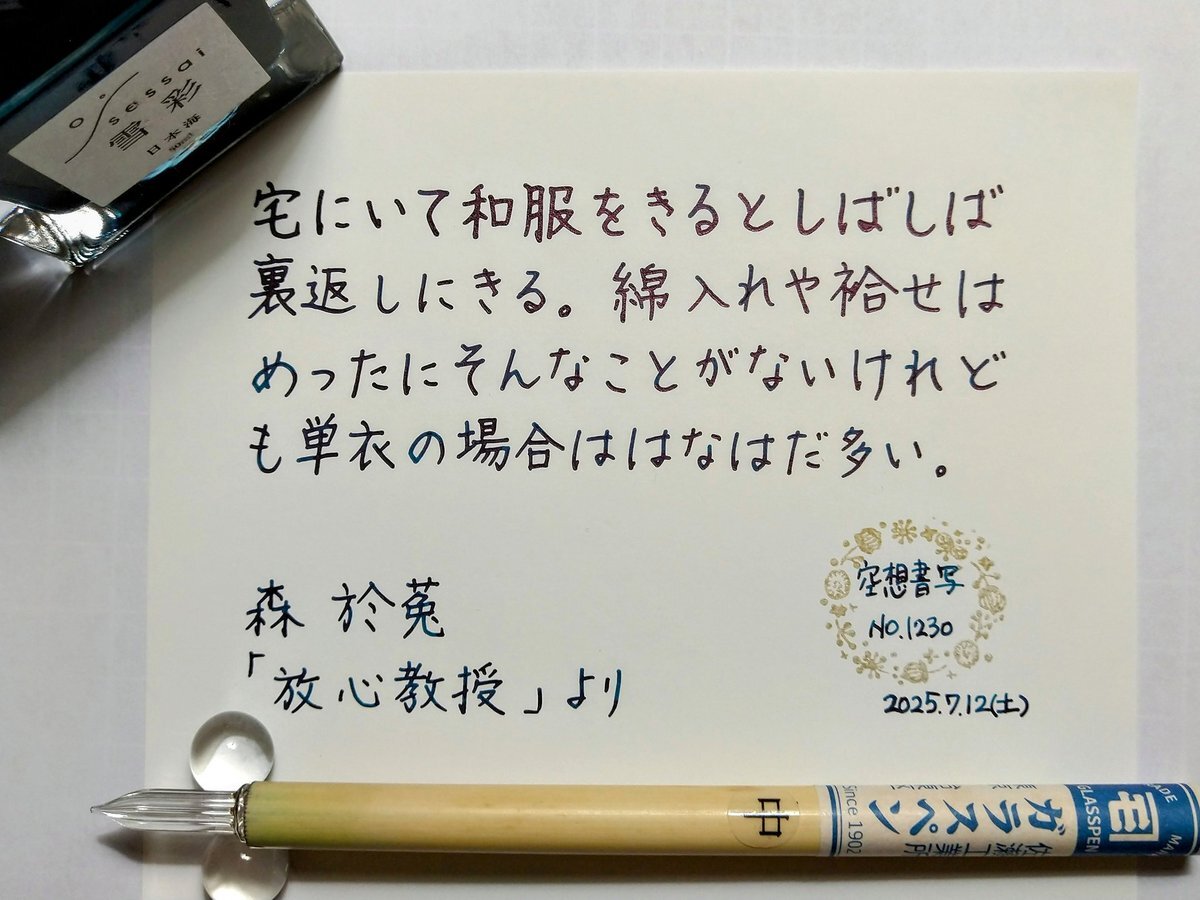 sessai
雪彩
日本海
宅にいて和服をきるとしばしば
裏返しにきる。綿入れや袷せは
めったにそんなことがないけれど
も単衣の場合ははなはだ多い。
森 於菟
「放心教授」より
空想書写
NO.1230
2025.7.12(土)
中
Since 1902
ガラスペン
佐瀬工業所
GLASSPEN